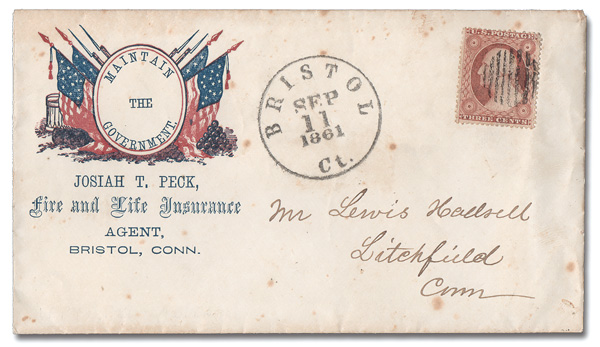 MAINTAIN
THE
GOVERNMENT.
JOSIAH T. PECK,
Fire and Life Insurance
AGENT,
BRISTOL, CONN.
BRISTOL
SEP
11
1861
Ct.
U.S. POSTAGE
THREE CENTS
Mr Lewis Hadsell
Litchfield
Conn